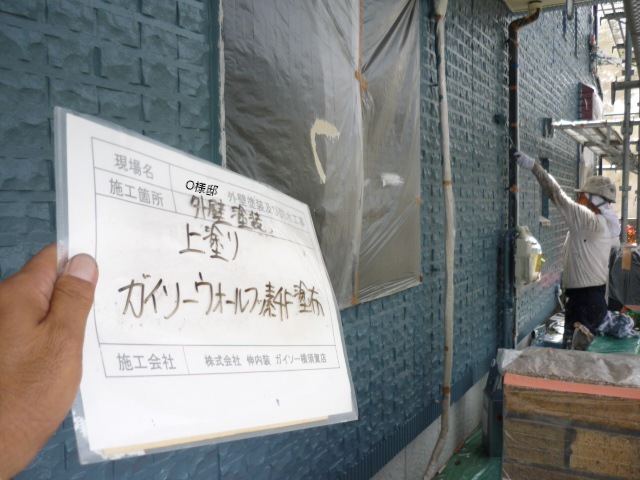 現場名 O様邸 外壁塗装及び防水工事
施工箇所 外壁塗装
上塗り
ガイソーウォールフッ素チ塗布
施工会社 株式会社 伸内装 ガイソー横須賀店